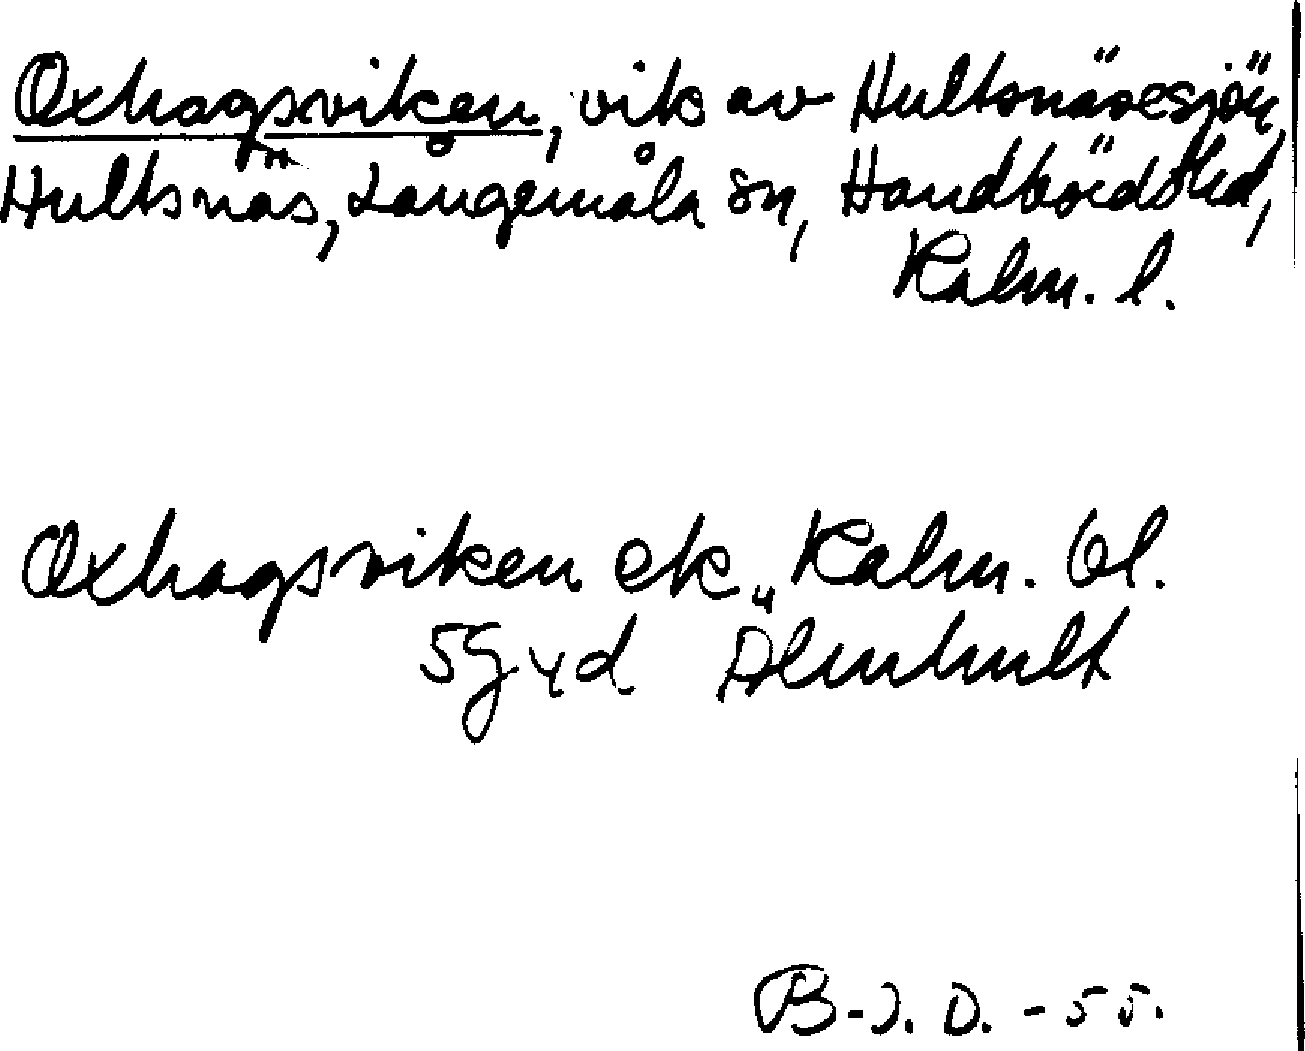 Oxhagsviken, vik av Hultsnäsesjön,
Hultsnäs, Långemåla sn, Handbördshd,
Kalm. l.
Oxhagsviken ek. Kalm. öl.
5G yd Älmhult
B-J. D. - 55.